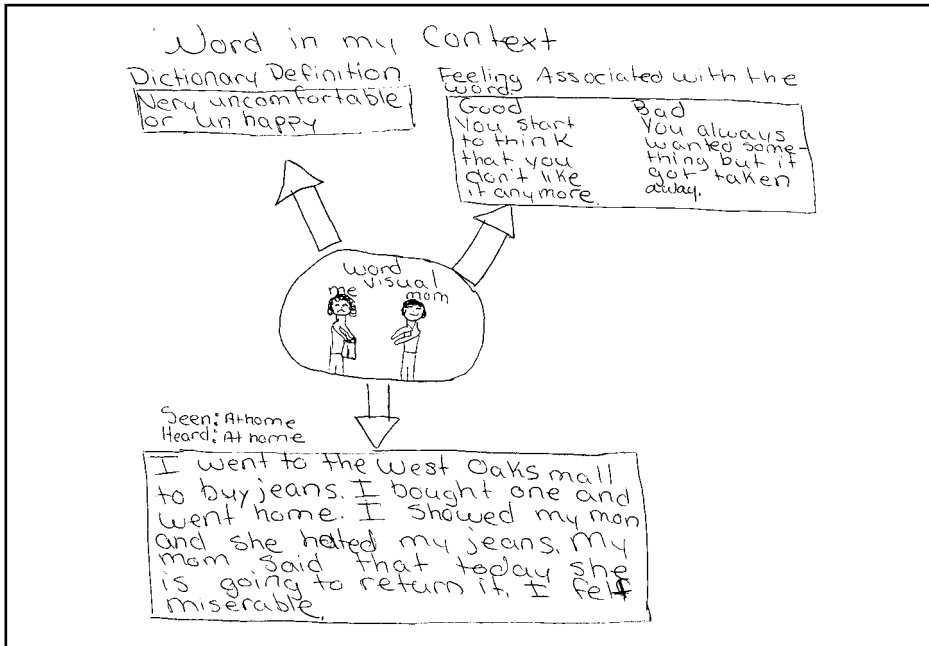 Word in my Context
Dictionary Definition
Very uncomfortable
or unhappy
Feeling Associated with the
word:
Good
You start
to think
that you
don't like
it anymore.
Bad
You always
wanted some-
thing but it
got taken
away.
word
visual
me
mom
Seen: At home
Heard: At home
I went to the West Oaks mall
to buy jeans. I bought one and
went home. I showed my mon
and she hated my jeans. My
mom said that today she
is going to return it. I felt
miserable.